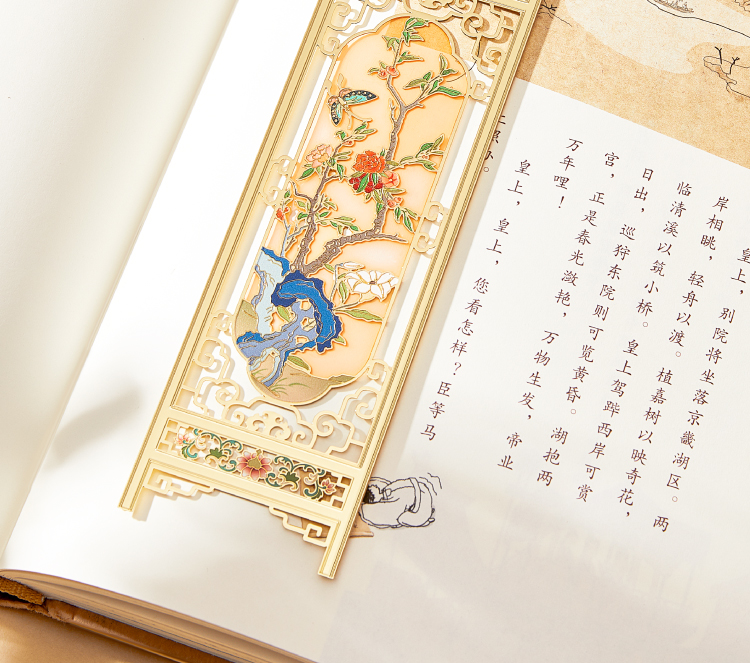 皇上，别院将坐落京畿湖区。两
岸相眺，轻舟以渡。植嘉树以映奇花，
临清溪以筑小桥。皇上驾跸西岸可赏
日出，巡狩东院则可览黄昏。湖抱两
宫，正是春光潋艳，万物生发，帝业
万年哩！
皇上，皇上，您看怎样？臣等马
上照办。